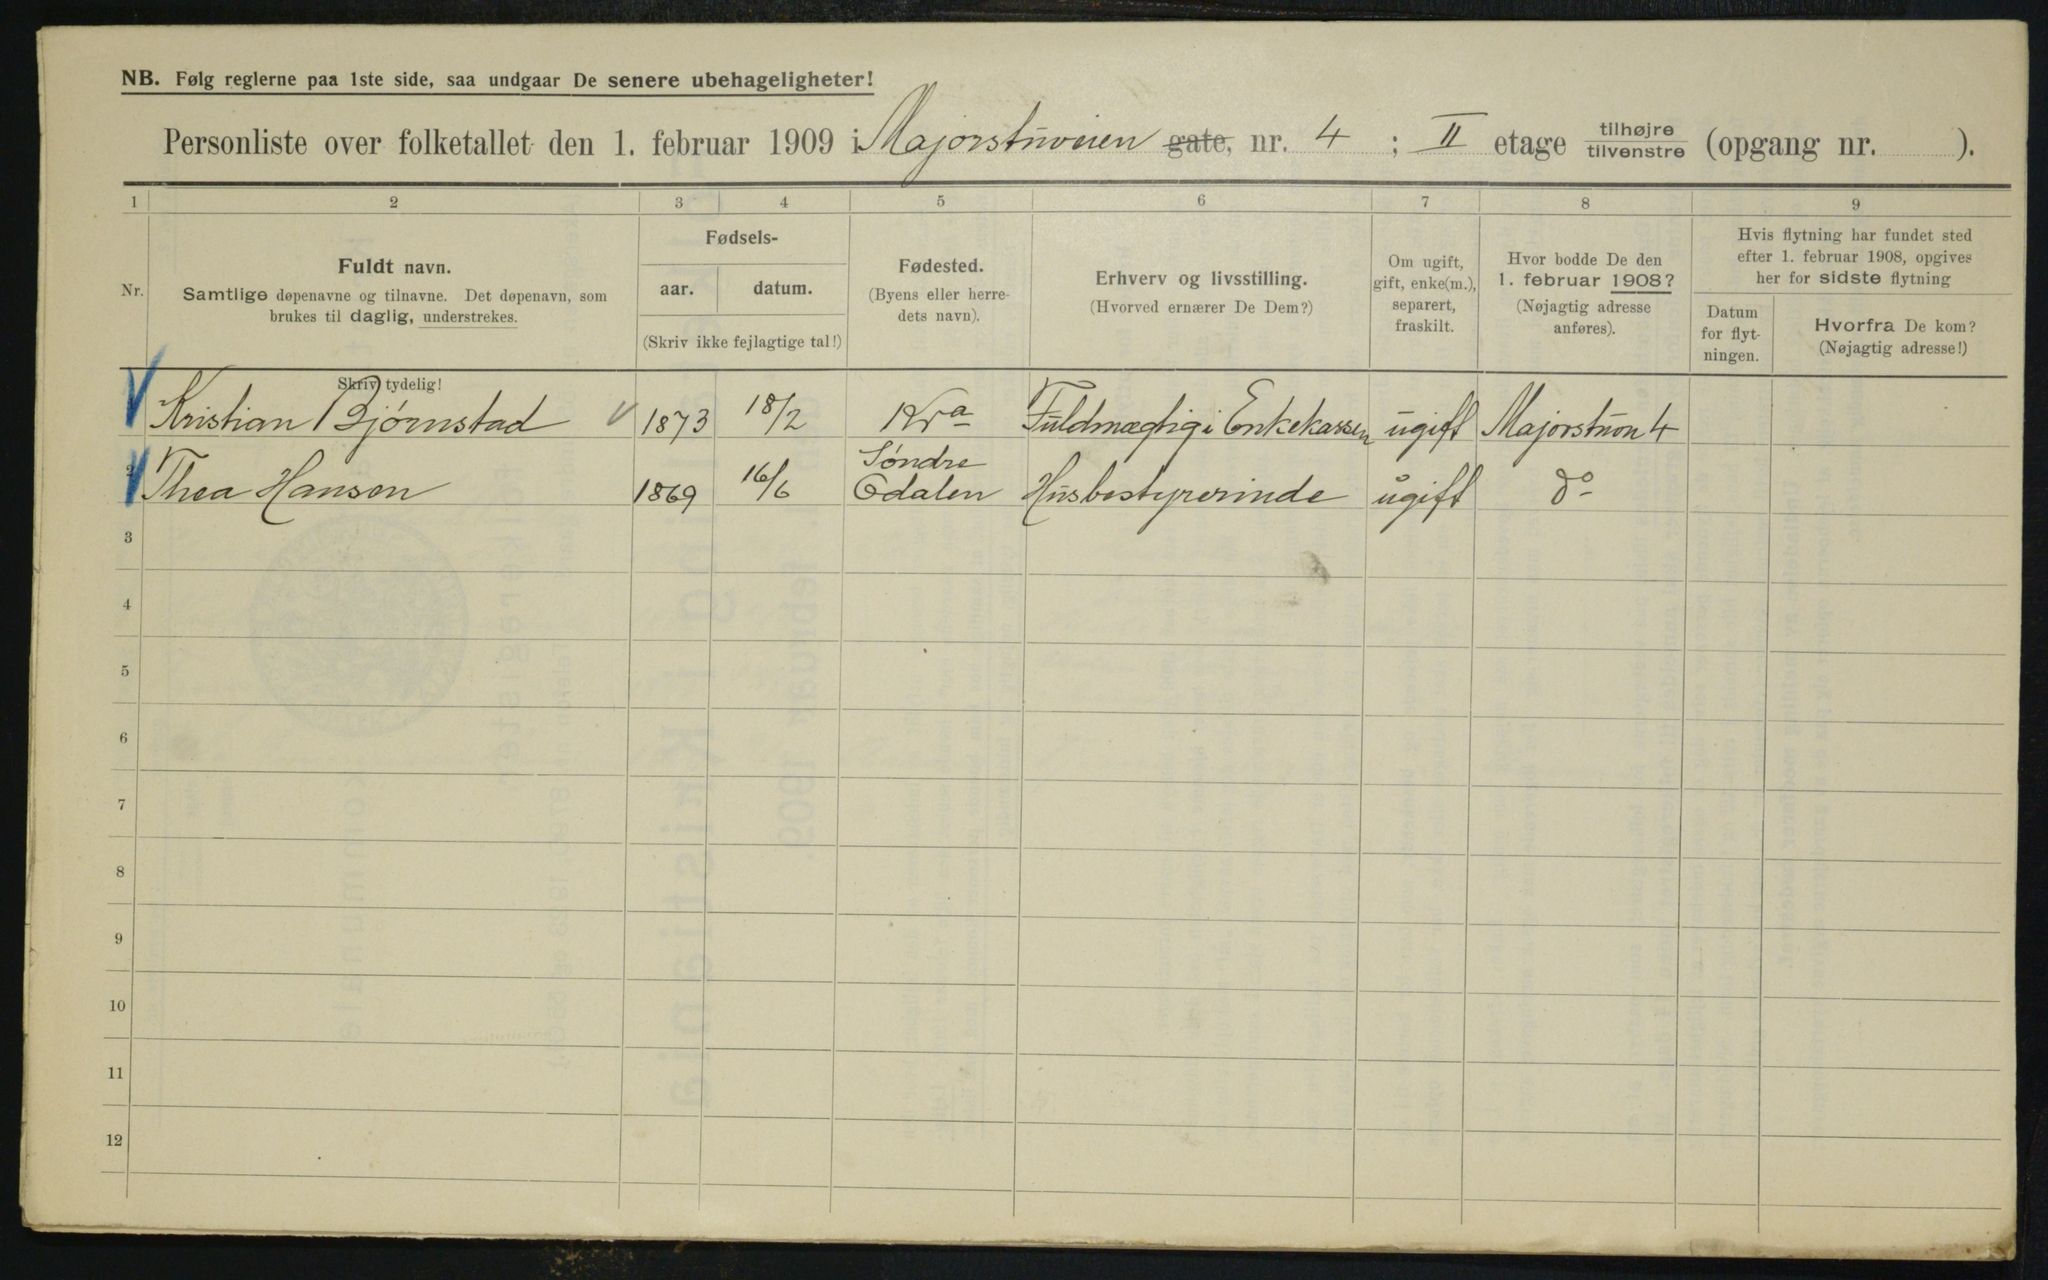 NB. Følg reglerne paa 1ste side, saa undgaar De senere ubehageligheter!
Personliste over folketallet den 1. februar 1909 i Majorstuveien gate, nr. 4 ; II etage tilhøjre tilvenstre (opgang nr. ).
1 2 3 4 5 6 7 8 9
Nr.
Fuldt navn.
Samtlige døpenavne og tilnavne. Det døpenavn, som
brukes til daglig, understrekes.
Skriv tydelig!
Fødsels-
aar. datum.
(Skriv ikke fejlagtige tal!)
Fødested.
(Byens eller herre-
dets navn).
Erhverv og livsstilling.
(Hvorved ernærer De Dem?)
Om ugift,
gift, enke(m.),
separert,
fraskilt.
Hvor bodde De den
1. februar 1908?
(Nøjagtig adresse
anføres).
Hvis flytning har fundet sted
efter 1. februar 1908, opgives
her for sidste flytning
Datum
for flyt-
ningen.
Hvorfra De kom?
(Nøjagtig adresse!)
Kristian Bjørnstad 1873 18/2 Kra Fuldmægtig i Enkekassen ugift Majorstuon 4
2 Thea Hansen 1869 16/6 Søndre
Odalen Husbestyrerinde ugift do
3
4
5
6
7
8
9
10
11
12